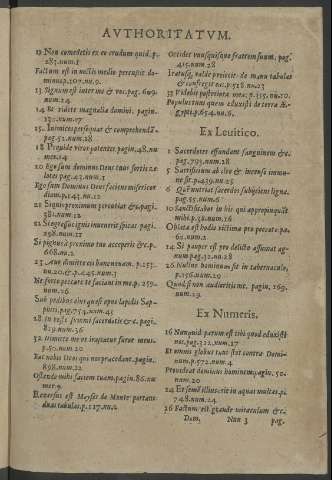 AVTHORITATVM.
12 Non comedetis ex eo crudum quid. p.
287. num. 1
Factum est in noctis medio percussit do-
minus p. 107. nu. 9.
13 signum est inter me & vos. pag. 609.
num. 24
14 Et videte magnalia domini. pagin.
num. 17
15. Inimicos persequar & comprehendã.
pag. 52. num. 28
18 Prouide viros potentes pagin. 48. nu
mer. 14
20 Ego sum dominus Deus tuus fortis ze
lotes pag. 43. num. 1
Ego sum Dominus Deus faciens misericor
diam. p. 143. nu. 12
21 Siquis proximum percutiat &c. pagi.
581. num. 12
22 Si egressus ignis inuenerit spicas pagi.
298. num. 11
Si pignus à proximo tuo acceperis &c. p.
668. nu. 2
23 Aue dimittetis humentuam. p. 155.
nu. 20. & p. 645. num. 3
Ne forte peccare te faciant in me. p. 259
num. 26
Sub pedibus eius quasi opus lapidis Sap-
phiri, pag. 754. num. 45
28. In veste summi sacerdotis & c. pagi.
819. num. 36
32. Dimitte me vt irascatur furor meus.
p. 50. num. 20
Fac nobis Deos qui nos præcedant. pagin.
228. num. 11
Ostende mihi faciem tuam. pagin. 86. nu
mer. 9
Reuersus est Moyses de Monte portans
duas tabulas. p. 117. nu. 2
Occidet vnusquisque fratrem suum. pag.
415. num. 28
Iratusq, valde proiecit de manu tabulas
& confregit eas. p. 518. nu. 23
33 Videbis posteriora mea. p. 355. nu. 10.
Populus tuus quem eduxisti de terra Æ-
gypti. p. 654. nu. 6.
Ex Leuitico.
1 Sacerdotes effundant sanguinem &c.
pag. 793. num. 28
5 Sacrificium ab eleo & incenso immu-
ne sit. p. 439. nu. 25
6 Quæ nutriat sacerdos subijciens ligna.
pag. 55. num. 6
10 Sanctificabor in his qui appropinquãt
mihi. p. 58. num. 16
Oblata est hodie victima pro peccato. pa
62. num. 2
14 Si pauper est pro delicto assumat ag-
num pag. 32. nu. 28
16 Nullus hominum sit in tabernaculo,
p. 156. num. 29
Quod si non audieritis me. pagin. 169.
num. 29.
Ex Numeris.
16 Nunquid parum est tibi quod eduxisti
nos. pag. 322. num. 17
Et omnis globus tuus stet contra Domi-
num, p. 572. num. 4
Prouideat dominus hominem. pagin. 50.
num. 20
24 Et semẽ illius erit in aquas multas. pi.
748. num. 24.
26 Factum est grande miraculum & c.
Dom. Nnn 3 pag.